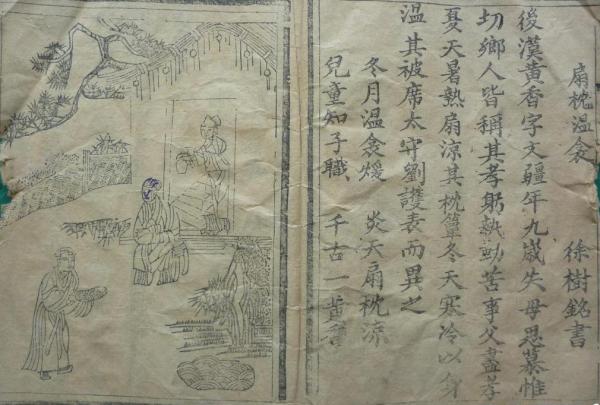 扇枕溫衾 徐樹銘書
後漢黃香字文疆年九歲失母思慕惟
切鄉人皆稱其孝躬執勤苦事父盡孝
夏天暑熱扇涼其枕簟冬天寒冷以身
溫其被席太守劉護表而異之
冬月溫衾煖 炎天扇枕涼
兒童知子職 千古一黃香